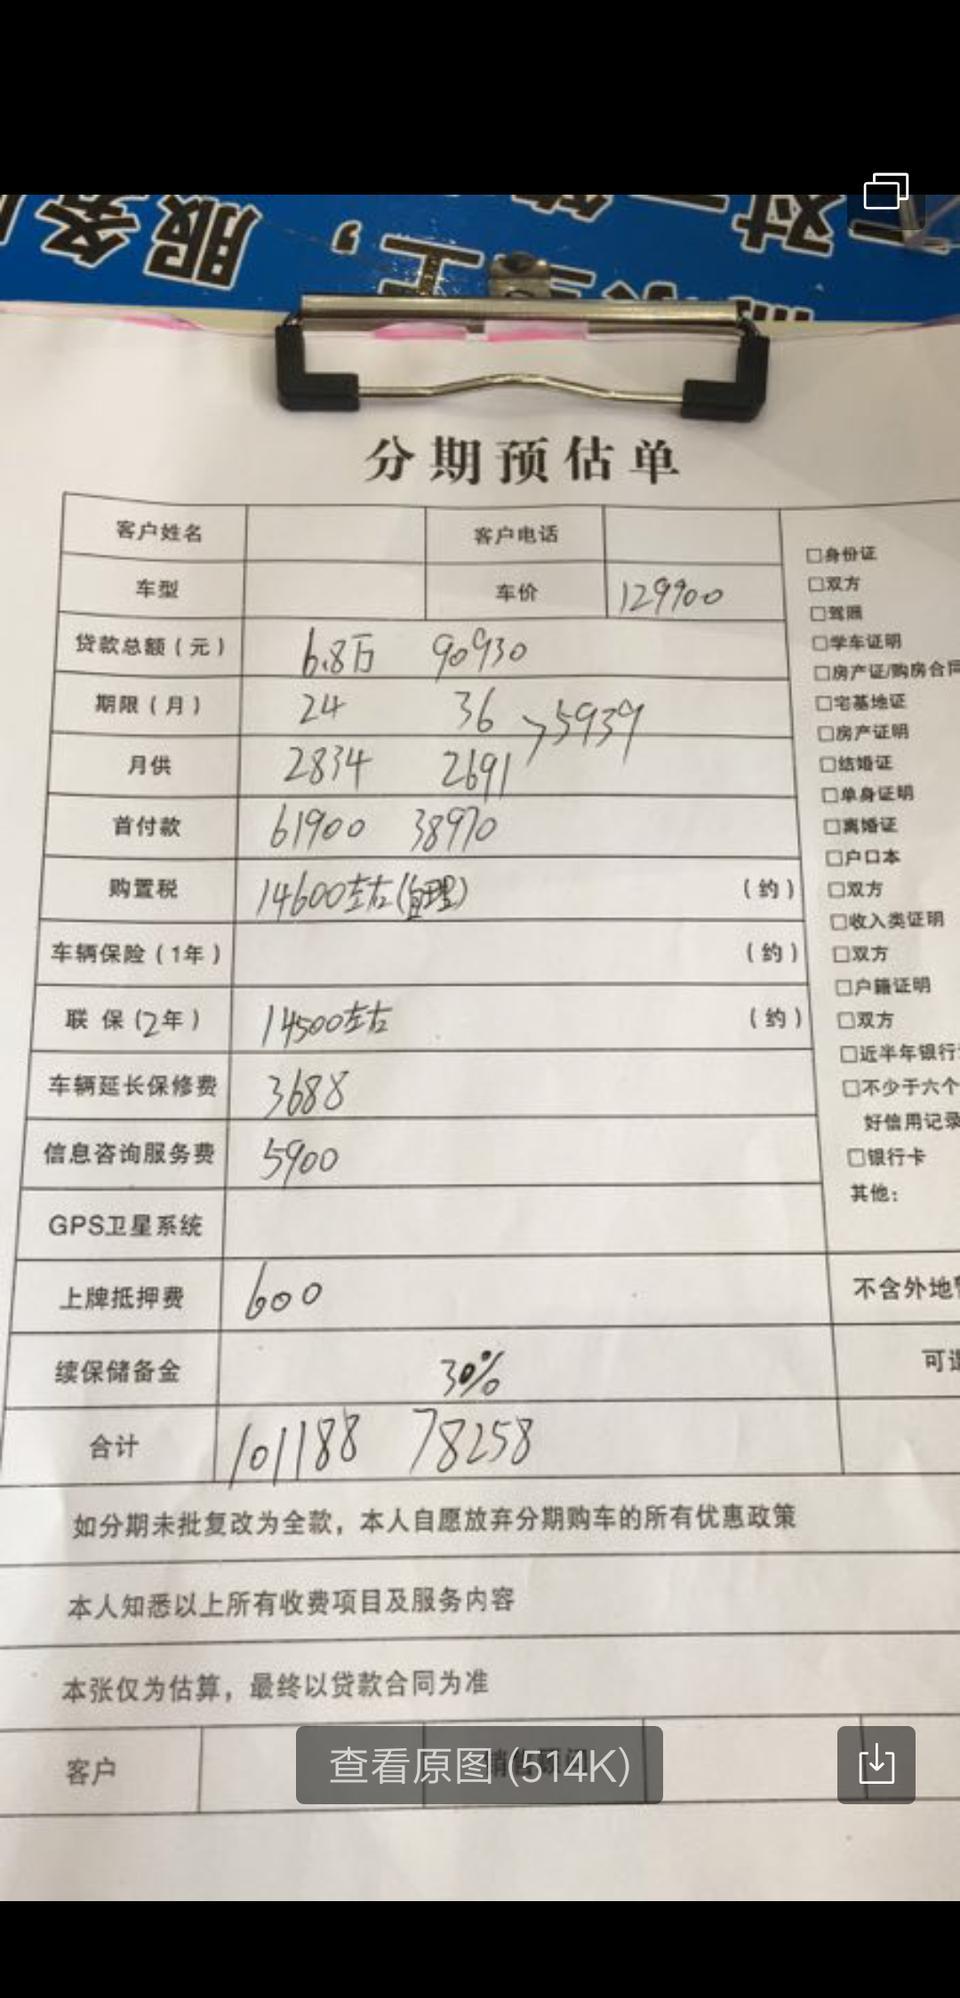 服务
上，
对
分期预估单
客户姓名 客户电话
车型 车价 129900
贷款总额（元） 6.8万 90930
期限（月） 24 36 >5939
月供 2834 2691
首付款 61900 38970
购置税 14600左右(自理) （约）
车辆保险（1年） （约）
联 保 (2年) 14500左右 （约）
车辆延长保修费 3688
信息咨询服务费 5900
GPS卫星系统
上牌抵押费 600 不含外地
续保储备金 30% 可
合计 101188 78258
如分期未批复改为全款，本人自愿放弃分期购车的所有优惠政策
本人知悉以上所有收费项目及服务内容
本张仅为估算，最终以贷款合同为准
客户
查看原图 (514K)
□身份证
□双方
□驾照
□学车证明
□房产证/购房合同
□宅基地证
□房产证明
□结婚证
□单身证明
□离婚证
□户口本
□双方
□收入类证明
□双方
□户籍证明
□双方
□近半年银行
□不少于六个
好信用记录
□银行卡
其他：